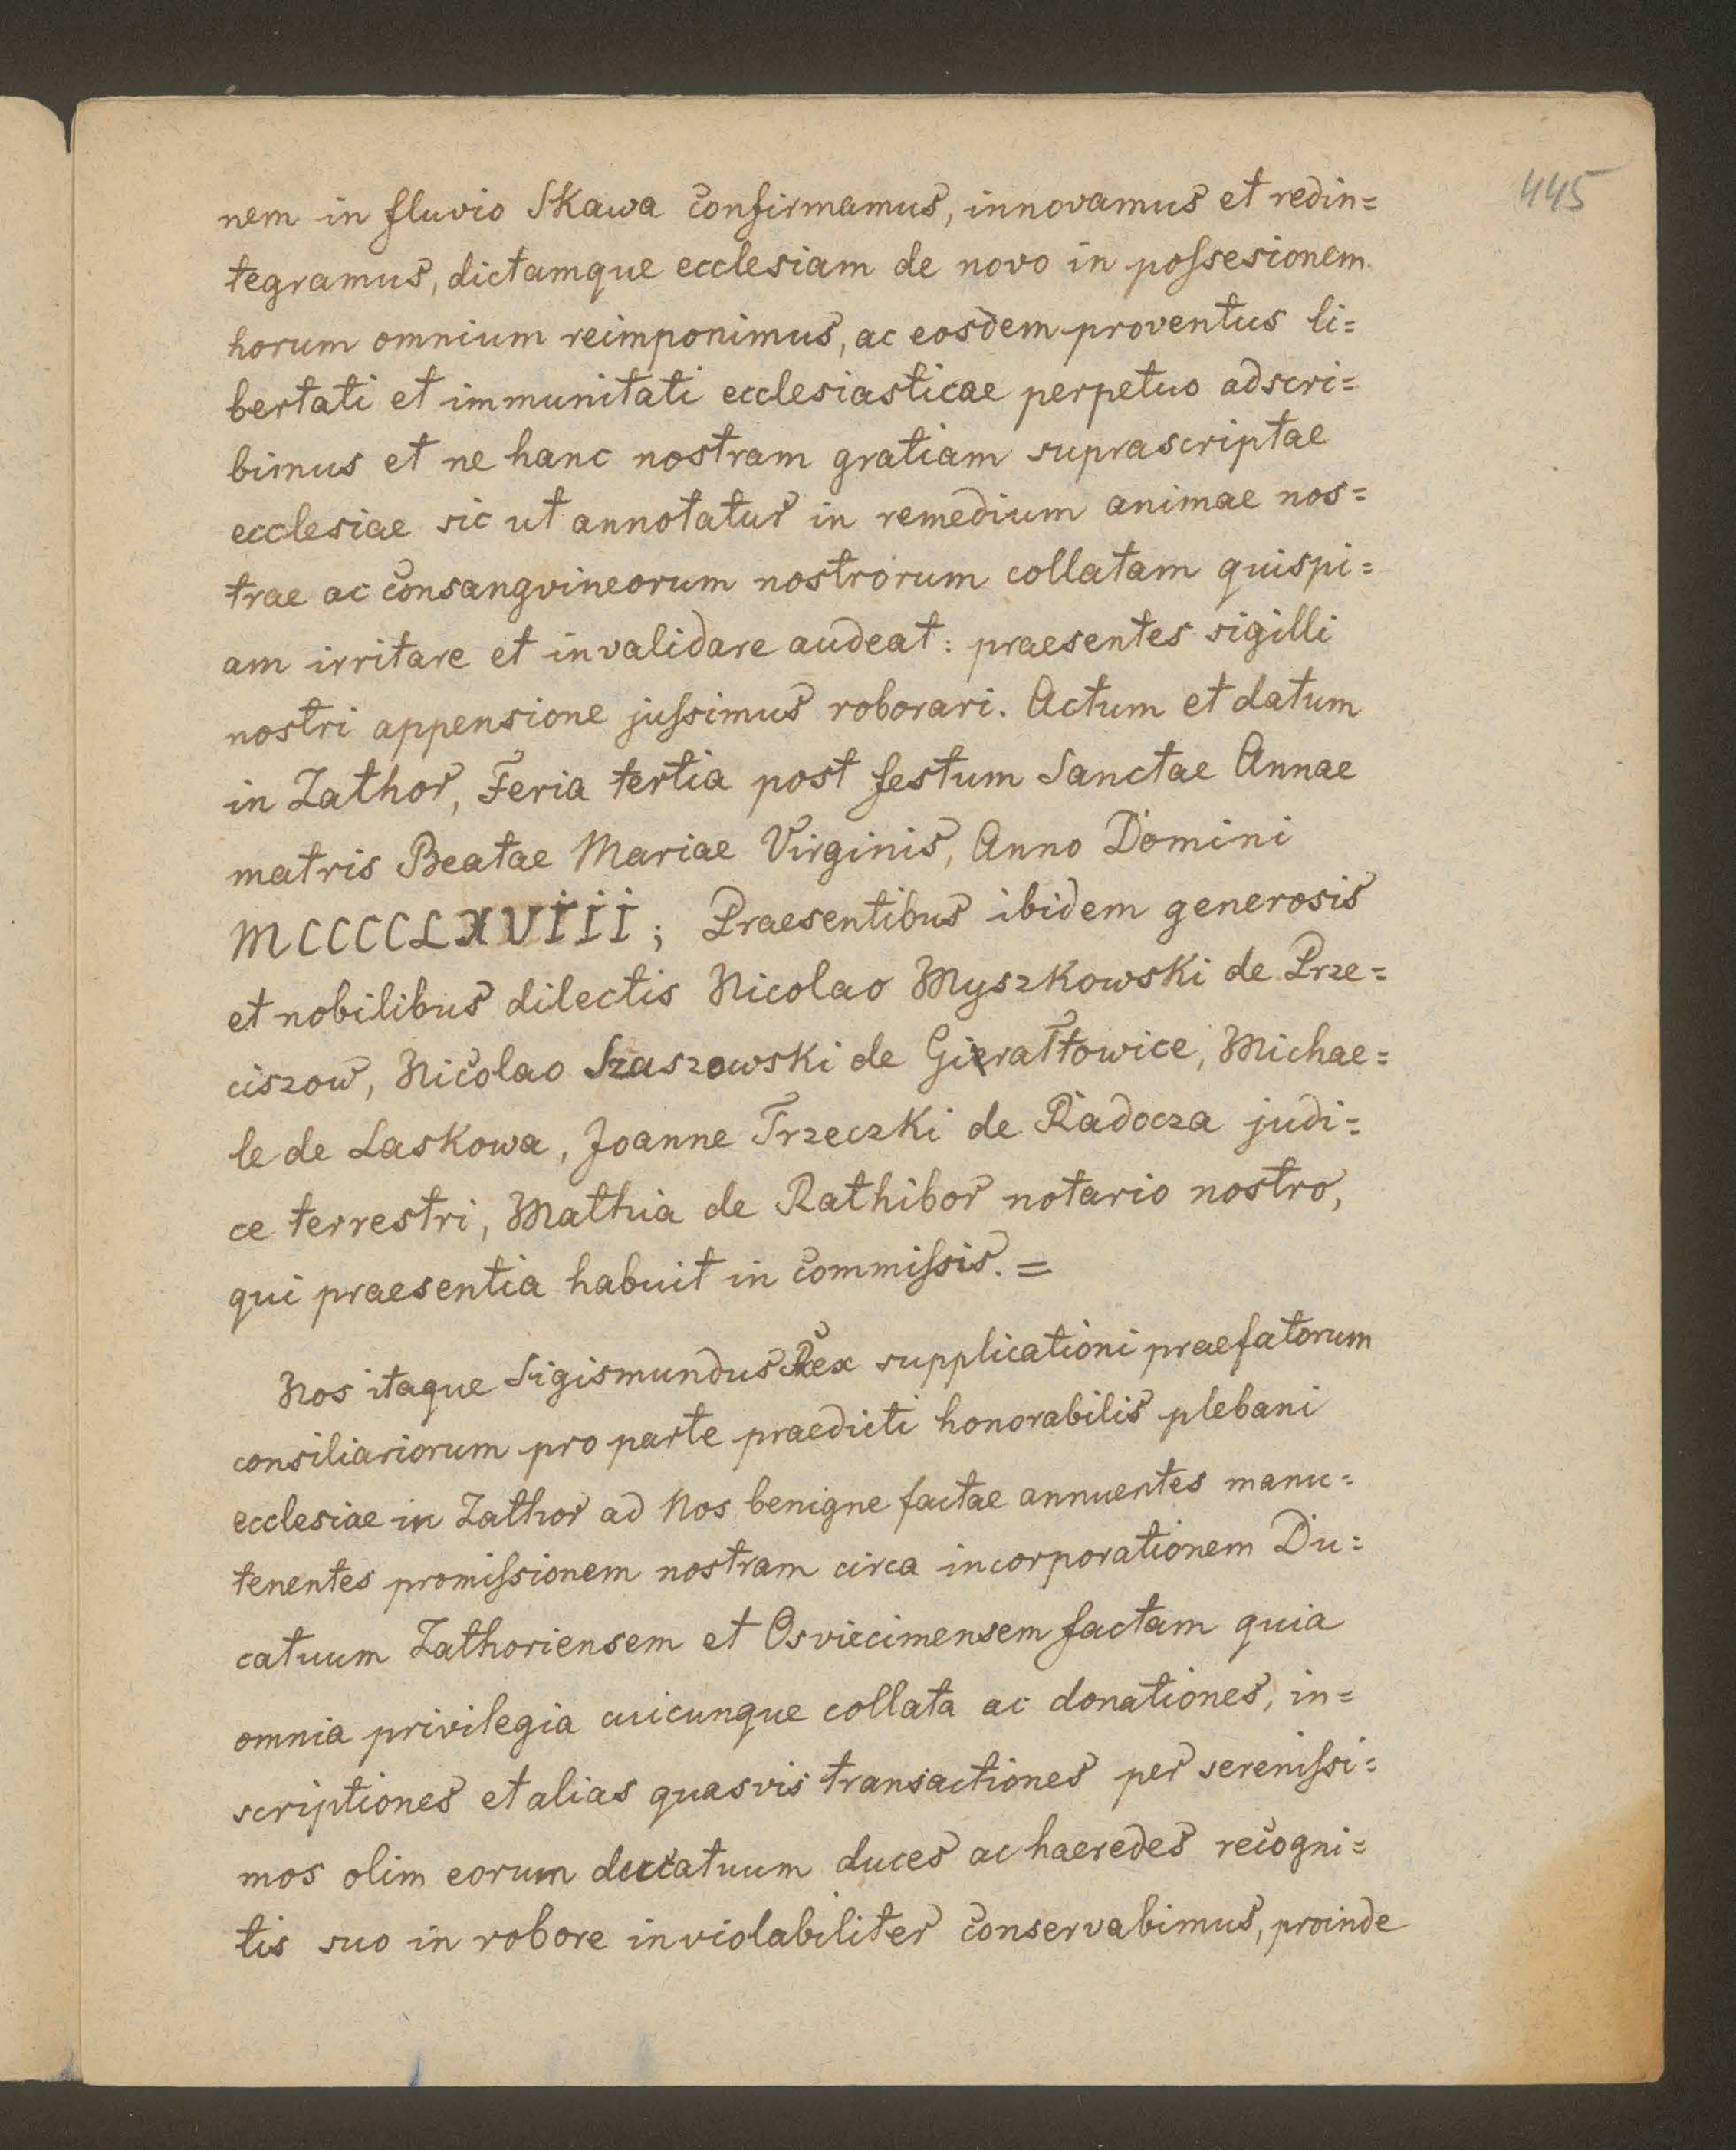 445
nem in fluvio Skawa confirmamus, innovamus et redin=
tegramus, dictamque ecclesiam de novo in poſsesionem
horum omnium reimponimus, ac eosdem proventus li=
bertati et immunitati ecclesiasticae perpetuo adscri=
bimus et ne hanc nostram gratiam suprascriptae
ecclesiae sic ut annotatur in remedium animae nos=
trae ac consangvineorum nostrorum collatam quispi=
am irritare et invalidare audeat: praesentes sigilli
nostri appensione juſsimus roborari. Actum et datum
in Zathor, Feria tertia post festum Sanctae Annae
matris Beatae Mariae Virginis, Anno Domini
MCCCCLXVIII; Praesentibus ibidem generosis
et nobilibus dilectis Nicolao Myszkowski de Prze=
ciszow, Nicolao Szaszowski de Gierałtowice, Michae=
le de Laskowa, Joanne Trzeczki de Radocza judi=
ce terrestri, Mathia de Rathibor notario nostro,
qui praesentia habuit in commiſsis. =
Nos itaque Sigismundus Rex supplicationi praefatorum
consiliariorum pro parte praedicti honorabilis plebani
ecclesiae in Zathor ad Nos benigne factae annuentes manu=
tenentes promiſsionem nostram circa incorporationem Du=
catuum Zathoriensem et Osviecimensem factam quia
omnia privilegia cuicunque collata ac donationes, in=
scriptiones et alias quasvis transactiones per sereniſsi=
mos olim eorum ducatuum duces ac haeredes recogni=
tis suo in robore inviolabiliter conservabimus, proinde